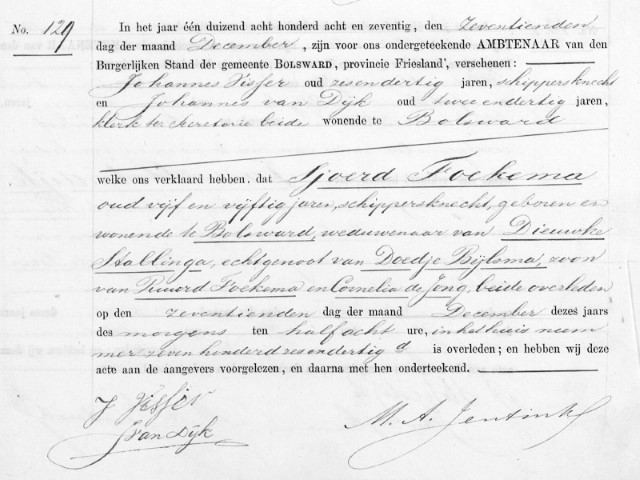 No. 129
In het jaar één duizend acht honderd acht en zeventig, den zeventienden
dag der maand December, zijn voor ons ondergeteekende AMBTENAAR van den
Burgerlijken Stand der gemeente BOLSWARD, provincie Friesland, verschenen:
Johannes Visser oud zesendertig jaren, schippersknecht
en Johannes van Dijk oud tweeendertig jaren,
klerk ter secretarie beide wonende te Bolsward
welke ons verklaard hebben, dat Sjoerd Foekema
oud vijf en vijftig jaren, schippersknecht, geboren en
wonende te Bolsward, weduwenaar van Dieuwke
Stallinga, echtgenoot van Doedje Bijlsma, zoon
van Ruurd Foekema en Cornelia de Jong, beide overleden
op den zeventienden dag der maand December dezes jaars
des morgens ten half acht ure, in het huis num
mer zevenhonderd zesendertig d is overleden; en hebben wij deze
acte aan de aangevers voorgelezen, en daarna met hen onderteekend.
J Visser
J van Dijk
M. A. Jentink